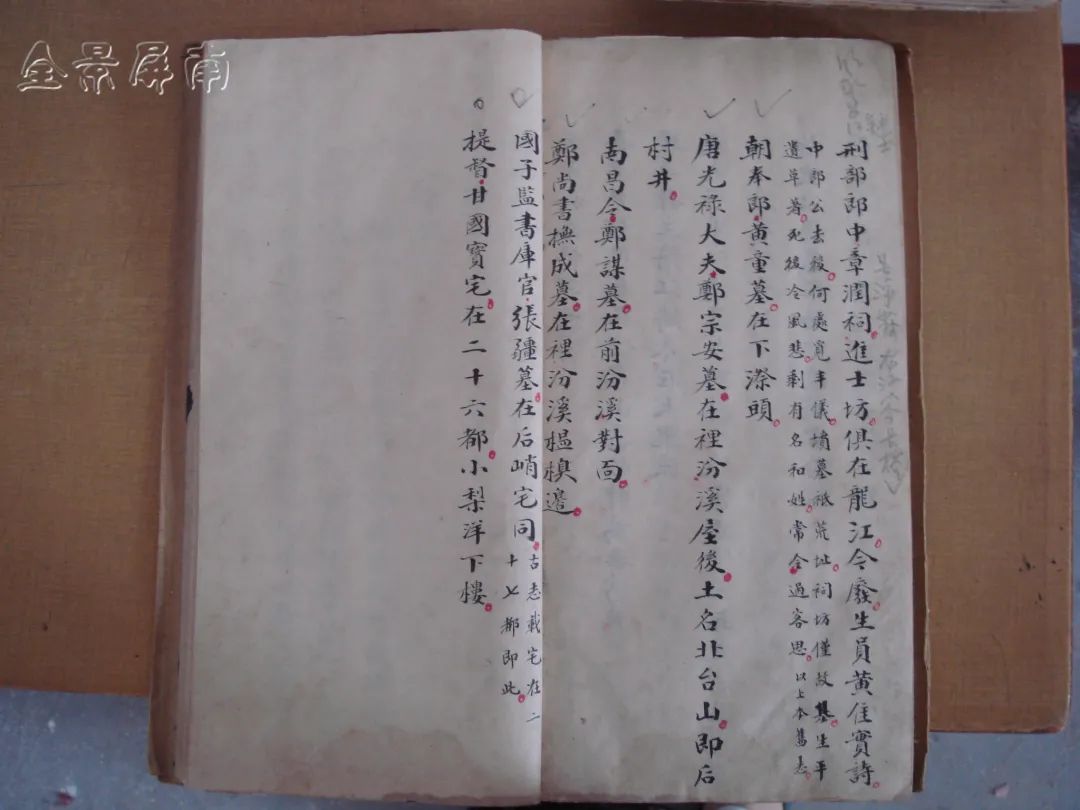 全景屏南
刑部郎中章潤祠進士坊俱在龍江今廢生員黄住實詩
中郎公去後何處覓丰儀墳墓祗荒址祠坊僅故基生平
遺草著死後冷風悲剩有名和姓常令過客思以上本舊志
朝奉郎黄童墓在下漈頭
唐光祿大夫鄭宗安墓在裡汾溪屋後土名北台山即后
村井
南昌令鄭謀墓在前汾溪對面
鄭尚書撫成墓在裡汾溪榅模邉
國子監書庫官張疆墓在后峭宅同古志載宅在二
十七都即此
提督甘國寳宅在二十六都小梨洋下樓